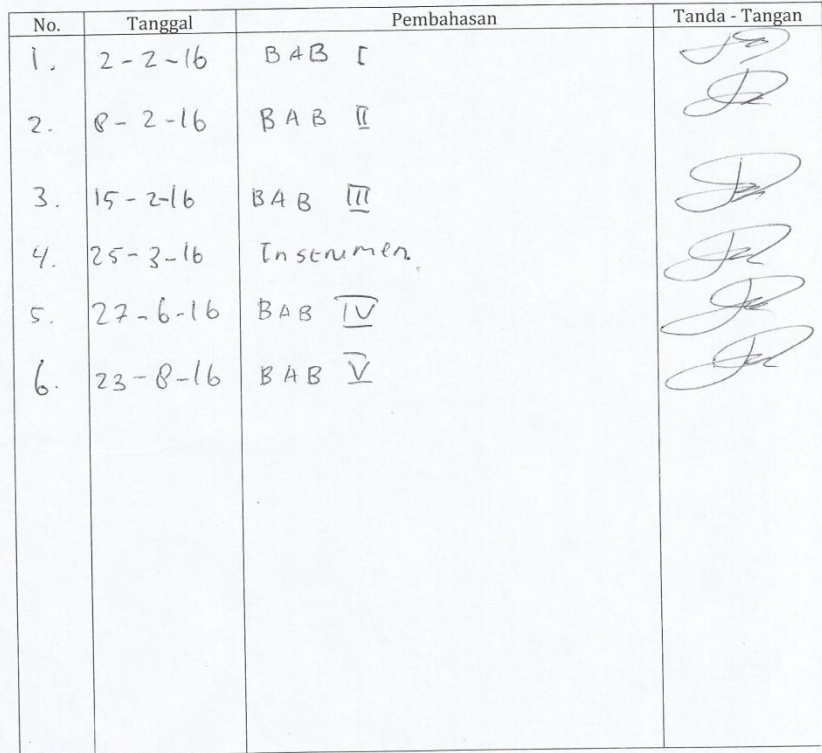 No. Tanggal Pembahasan Tanda - Tangan
1. 2-2-16 BAB I
2. 8-2-16 BAB II
3. 15-2-16 BAB III
4. 25-3-16 Instrumen
5. 27-6-16 BAB IV
6. 23-8-16 BAB V